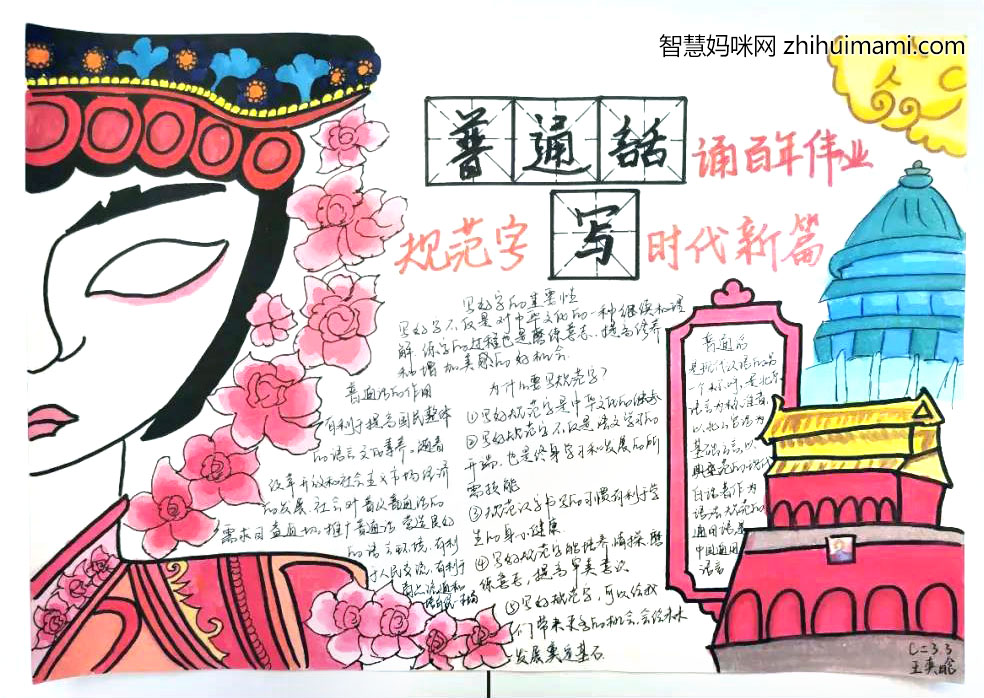 智慧妈咪网 zhihuimami.com
普通話 诵百年伟业
规范字 写 时代新篇
写好字的重要性
写好字不仅是对中华文化的一种继续和理
解.练字的过程也是磨练意志、提高修养
和增加美感的好机会.
普通话的作用
有利于提高国民整体
的语言文的素养。随着
改革开放和社会主义市场经济
的发展.社会对普及普通话的
需求日益迫切.推广普通话 营造良好
的语言环境.有利
于人民交流.有利于
商品流通和
为什么要写规范字?
①写好规范字是中华文化的
②写好规范字不仅是语文学习的
开端.也是终身学习和发展的所
需技能
③规范汉字书写的习惯有利于学
生的身心健康
④写好规范字能培养情操.磨
练意志,提高审美意识
⑤写好规范字,可以给我
们带来更多的机会.会给未来
发展奠定基石.
普通话
是现代汉语的另
一个称呼,是北京
语言为标准音,
以北方官话为
基础方言,以
典范的现代
白话著作为
语法规范的
通用语是
中国通用
语言
王奕晗